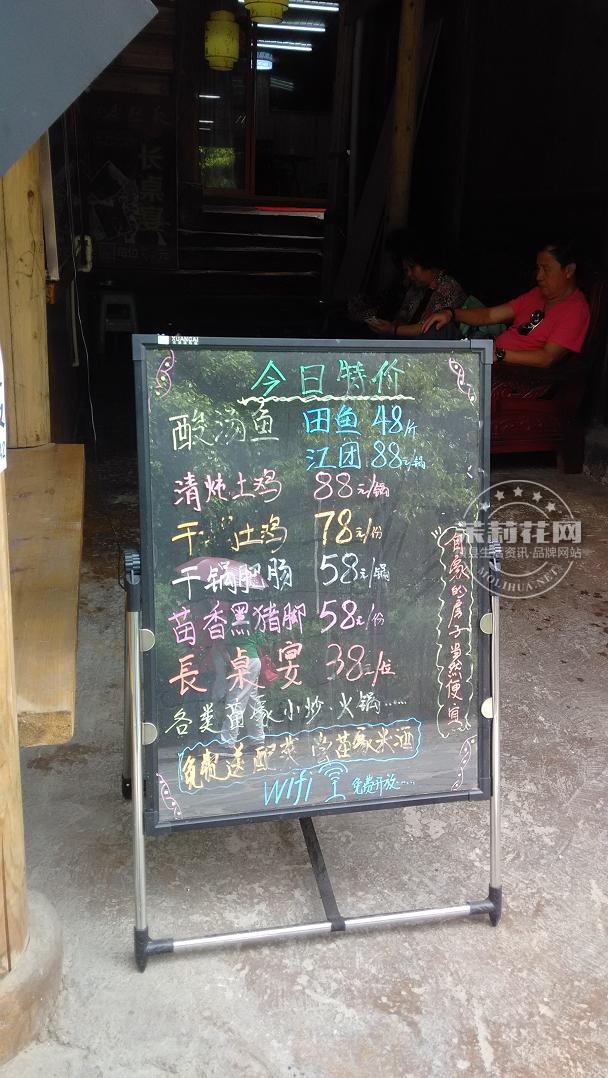 长桌宴
XUANCAI
今日特价
酸汤鱼 田鱼 48/斤
江团 88元/锅
清炖土鸡 88元/锅
干锅土鸡 78元/份
干锅肥肠 58元/锅
苗香黑猪脚 58元/份
長桌宴 38元/位
各类苗家小炒·火锅……
免费送配菜 尝苗家米酒
wifi 免费开放……
自家的房子当然便宜
茉莉花网
生活资讯·品牌网站
MOLIHUA.NET